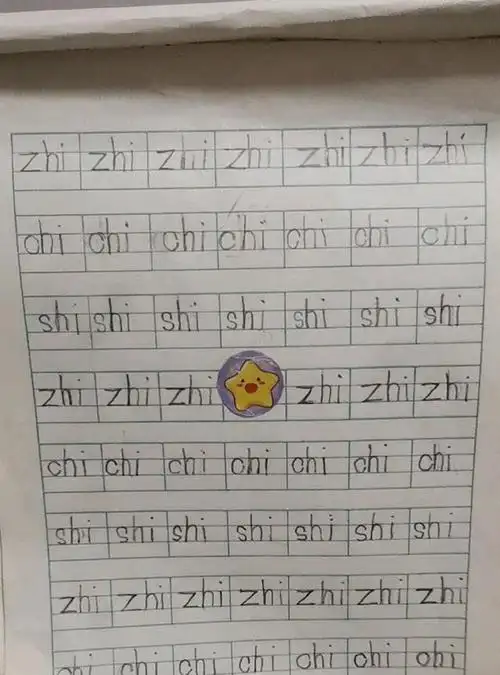 zhi zhi zhi zhi zhi zhi zhi
chi chi chi chi chi chi chi
shi shi shi shi shi shi shi
zhi zhi zhi zhi zhi zhi
chi chi chi chi chi chi chi
shi shi shi shi shi shi shi
zhi zhi zhi zhi zhi zhi zhi
chi chi chi chi chi chi chi